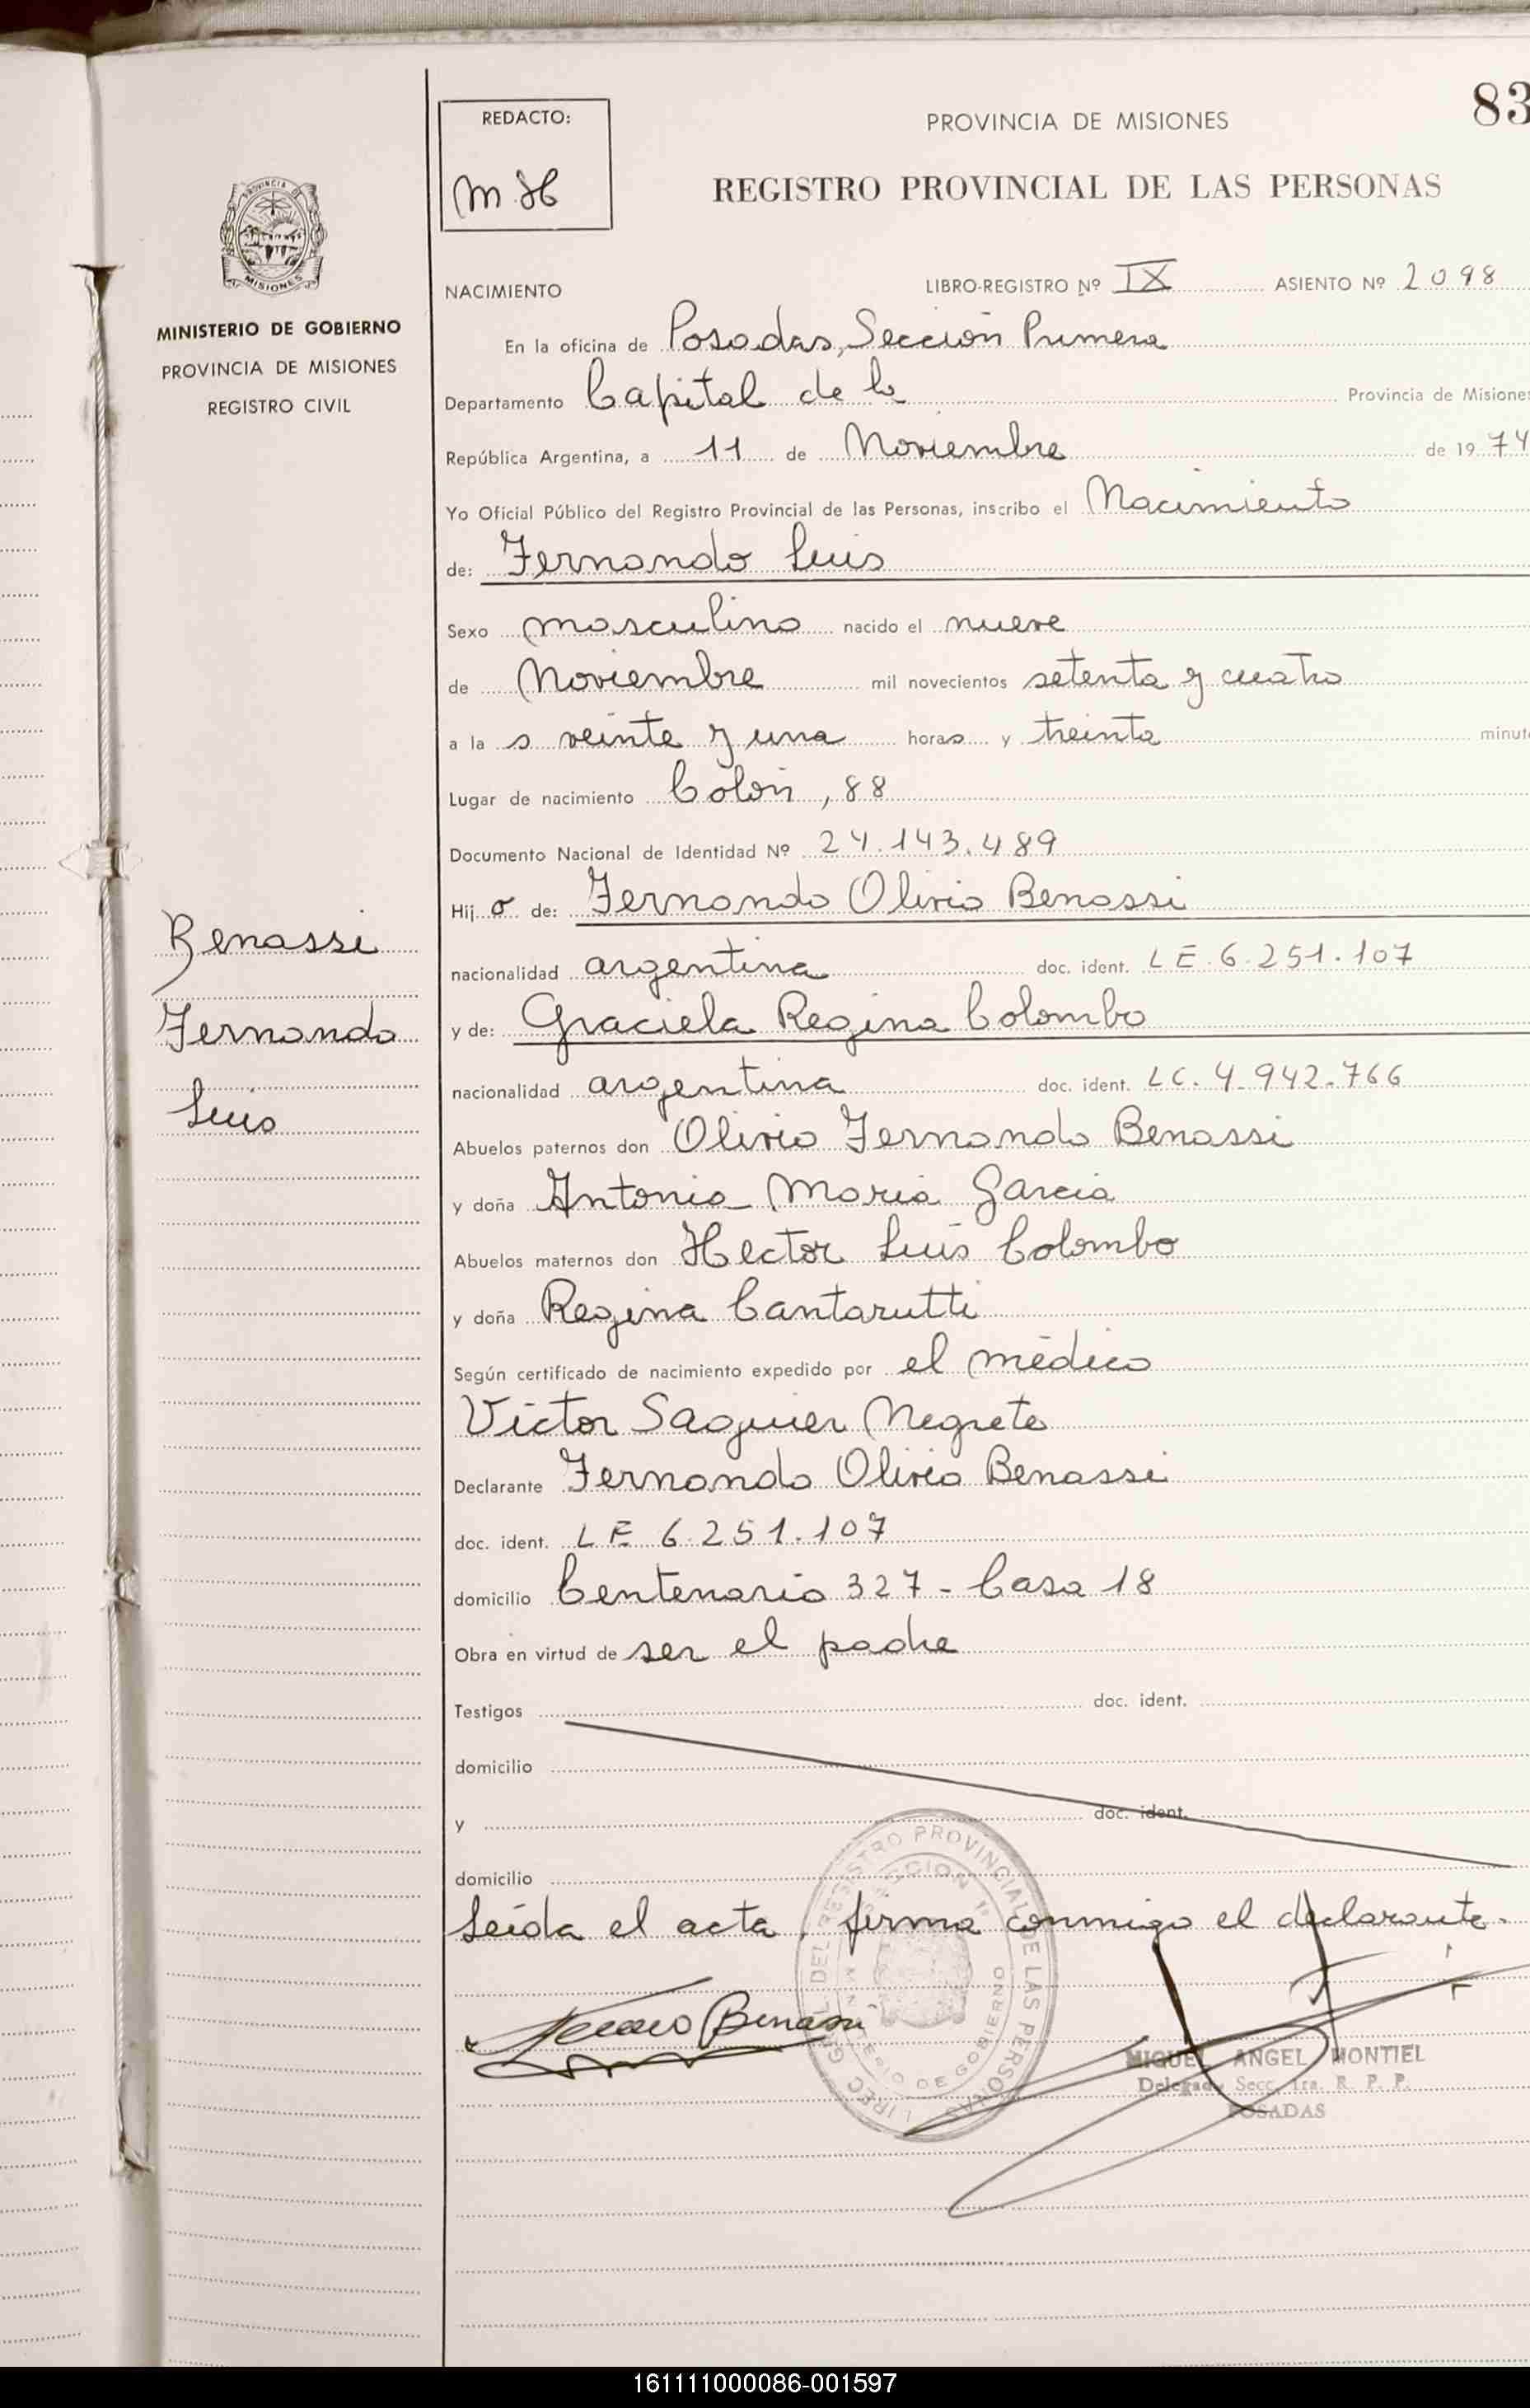 83
REDACTO:
PROVINCIA DE MISIONES
REGISTRO PROVINCIAL DE LAS PERSONAS
PROVINCIA DE
MISIONES
MINISTERIO DE GOBIERNO
PROVINCIA DE MISIONES
REGISTRO CIVIL
NACIMIENTO LIBRO-REGISTRO Nº IX ASIENTO Nº 2098
En la oficina de Posadas, Sección Primera
Departamento Capital de la Provincia de Misiones
República Argentina, a 11 de Noviembre de 1974
Yo Oficial Público del Registro Provincial de las Personas, inscribo el Nacimiento
de: Fernando Luis
Sexo masculino nacido el nueve
de Noviembre mil novecientos setenta y cuatro
a la s veinte y una horas y treinta minut
Lugar de nacimiento Colón, 88
Documento Nacional de Identidad Nº 24.143.489
Hij o de: Fernando Olivio Benassi
nacionalidad argentina doc. ident. LE 6.251.107
y de: Graciela Regina Colombo
nacionalidad argentina doc. ident. LC. 4.942.766
Abuelos paternos don Olivio Fernando Benassi
y doña Antonia Maria Garcia
Abuelos maternos don Hector Luis Colombo
y doña Regina Cantarutti
Según certificado de nacimiento expedido por el médico
Victor Saguier Negrete
Declarante Fernando Olivio Benassi
doc. ident. LE 6.251.107
domicilio Centenario 327 - Casa 18
Obra en virtud de ser el padre
Testigos doc. ident.
domicilio
y doc. ident.
domicilio
Leída el acta, firma conmigo el declarante.
Benassi
Fernando
Luis
Benassi
REGISTRO PROVINCIAL DE LAS PERSONAS
SECCION 1ª
MINISTERIO DE GOBIERNO
MIGUEL ANGEL MONTIEL
Delegado Secc. 1ra. R. P. P.
POSADAS
161111000086-001597